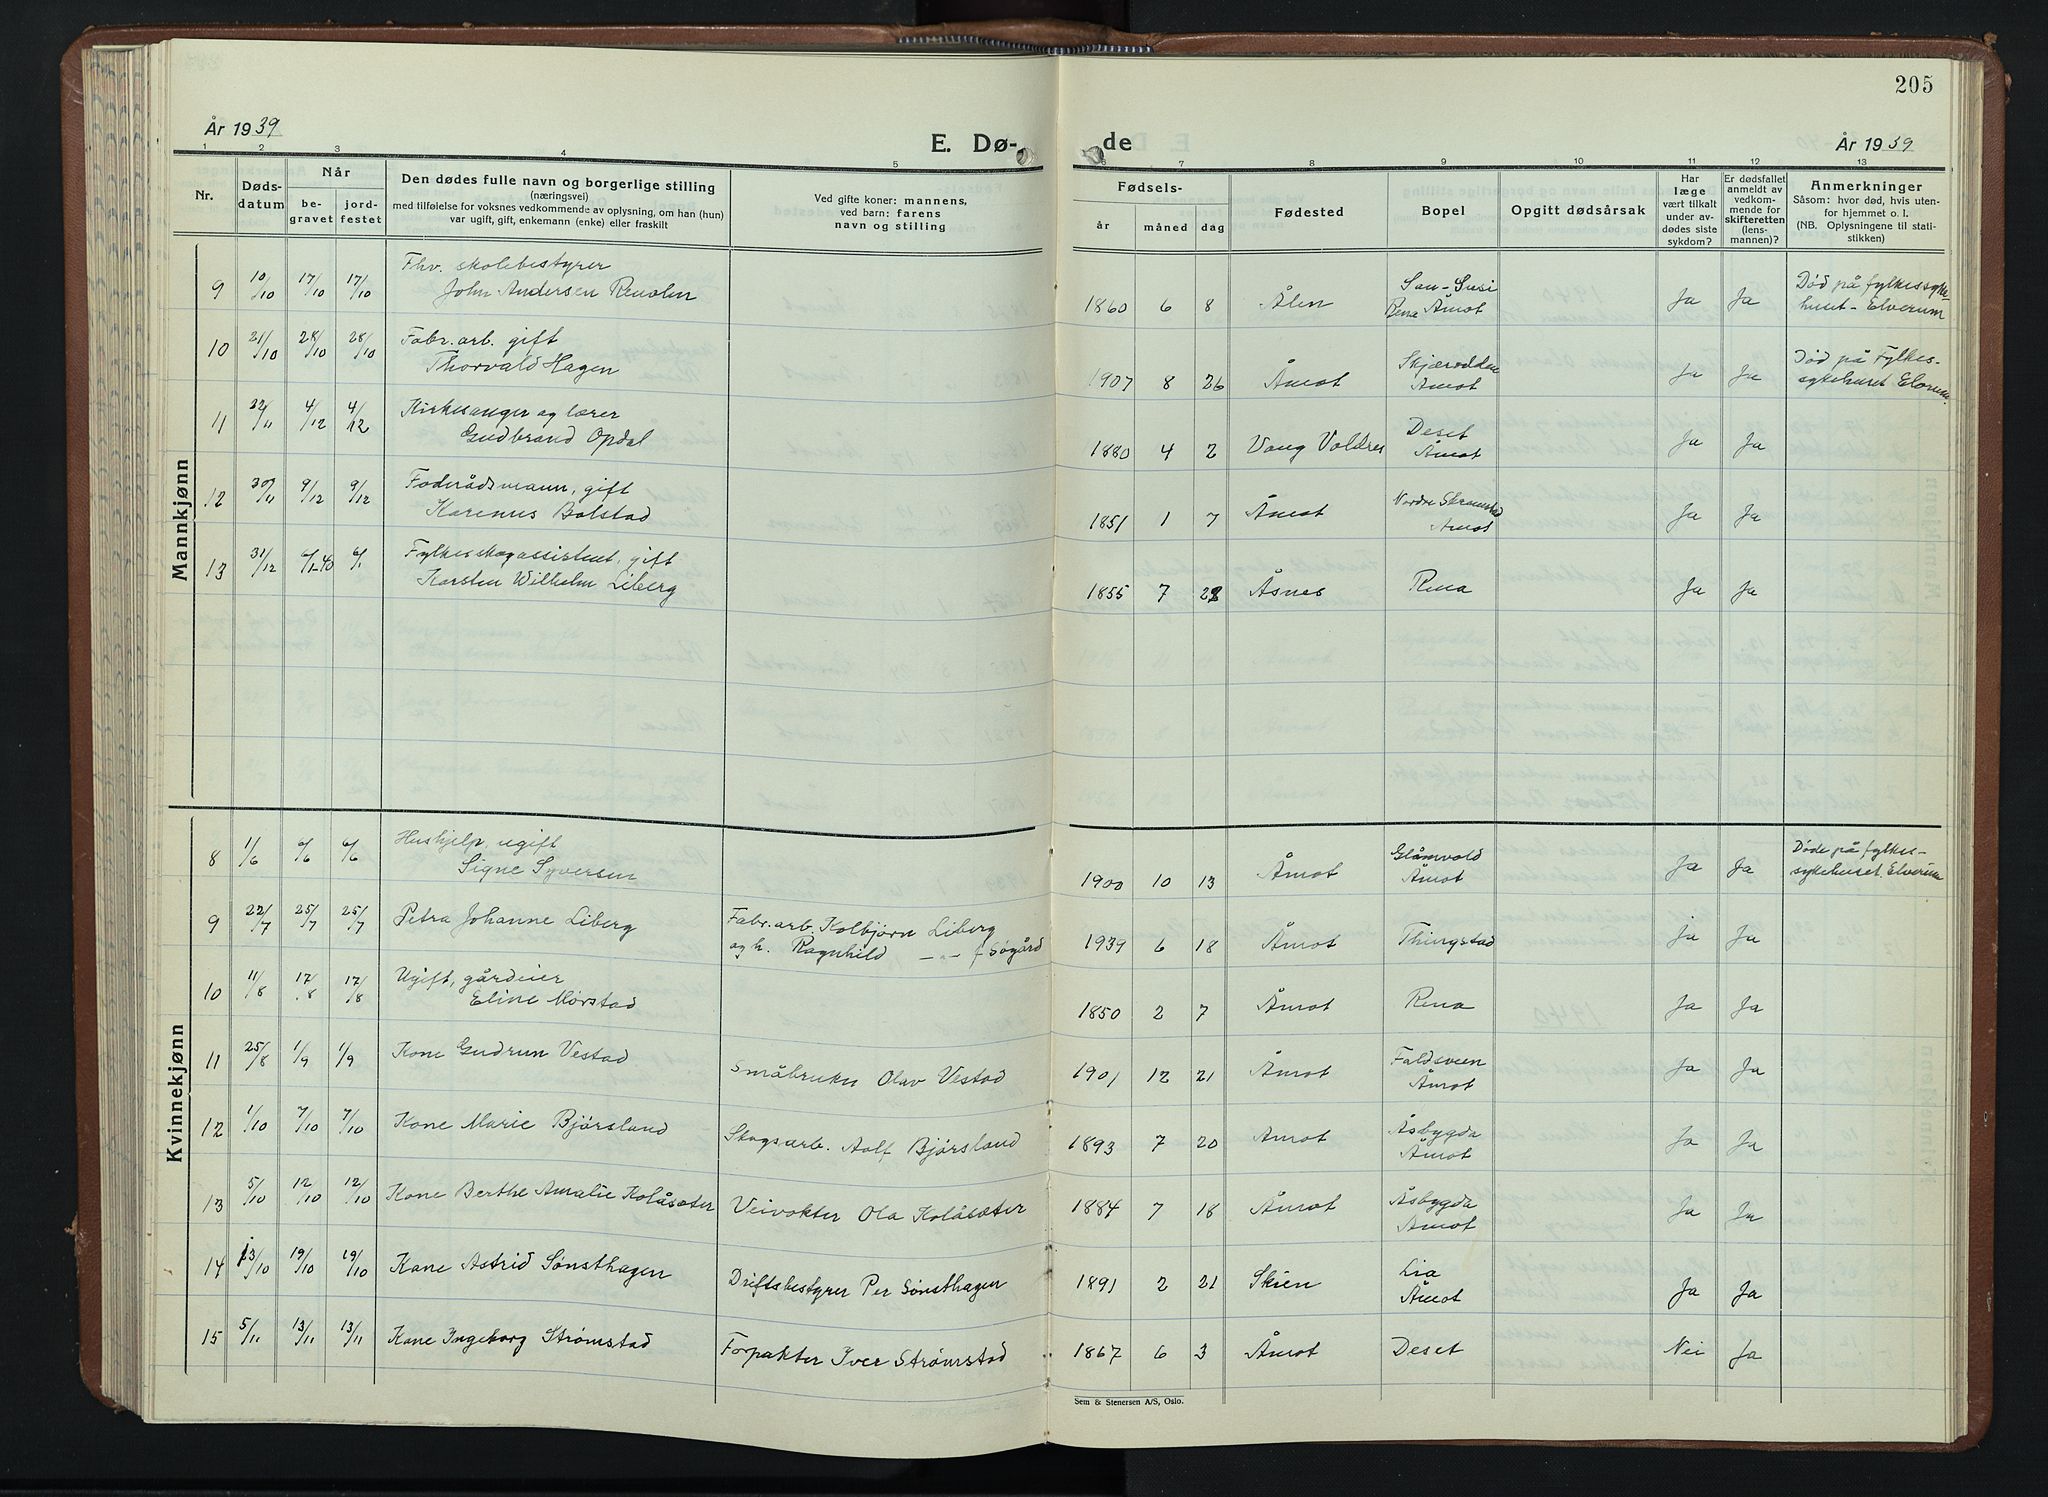 205
År 1939
E. Dø-
de
År 1939
1 2 3 4 5 6 7 8 9 10 11 12 13
Nr.
Døds-
datum
Når
be-
gravet
jord-
festet
Den dødes fulle navn og borgerlige stilling
(næringsvei)
med tilføielse for voksnes vedkommende av oplysning, om han (hun)
var ugift, gift, enkemann (enke) eller fraskilt
Ved gifte koner: mannens,
ved barn: farens
navn og stilling
Fødsels-
år måned dag
Fødested
Bopel
Opgitt dødsårsak
Har
læge
vært tilkalt
under av-
dødes siste
sykdom?
Er dødsfallet
anmeldt av
vedkom-
mende for
skifteretten
(lens-
mannen)?
Anmerkninger
Såsom: hvor død, hvis uten-
for hjemmet o. l.
(NB. Oplysningene til stati-
stikken)
Mannkjønn
9 10/10 17/10 17/10 Fhv. skolebestyrer
John Andersen Renolen
1860 6 8 Ålen San-Susi
Rena Åmot
Ja Ja Død på fylkessyke-
huset - Elverum
10 21/10 28/10 28/10 Fabr. arb. gift
Thorvald Hagen
1907 8 26 Åmot Skjærodden
Åmot
Ja Ja Død på Fylkes-
sykehuset Elverum.
11 22/11 4/12 4/12 Kirkesanger og lærer
Gudbrand Opdal
1880 4 2 Vang Valdres Deset
Åmot
Ja Ja
12 30/11 9/12 9/12 Føderådsmann, gift
Karenus Bolstad
1851 1 7 Åmot Nordre Skramstad
Åmot
Ja Ja
13 31/12 6/1-40 6/1 Fylkesskogassistent, gift
Karsten Wilhelm Liberg
1855 7 28 Åsnes Rena Ja Ja
Kvinnekjønn
8 1/6 6/6 6/6 Hushjelp, ugift
Signe Syversen
1900 10 13 Åmot Glåmvold
Åmot
Ja Ja Døde på fylkes-
sykehuset. Elverum
9 22/7 25/7 25/7 Petra Johanne Liberg Fabr. arb. Kolbjørn Liberg
og h. Ragnhild -"- f Søgård
1939 6 18 Åmot Thingstad Ja Ja
10 11/8 17/8 17/8 Ugift, gårdeier
Eline Mørstad
1850 2 7 Åmot Rena Ja Ja
11 25/8 1/9 1/9 Kone Gudrun Vestad
Småbruker Olav Vestad
1901 12 21 Åmot Faldsveen
Åmot
Ja Ja
12 1/10 7/10 7/10 Kone Marie Bjørsland
Skogsarb. Aolf Bjørsland
1893 7 20 Åmot Åsbygda
Åmot
Ja Ja
13 5/10 12/10 12/10 Kone Berthe Amalie Kolåsæter
Veivokter Ola Kolåsæter
1884 7 18 Åmot Åsbygda
Åmot
Ja Ja
14 13/10 19/10 19/10 Kone Astrid Sønsthagen
Driftsbestyrer Per Sønsthagen
1891 2 21 Skien Lia
Åmot
Ja Ja
15 5/11 13/11 13/11 Kone Ingeborg Strømstad
Forpakter Iver Strømstad
1867 6 3 Åmot Deset Nei Ja
Sem & Stenersen A/S, Oslo.